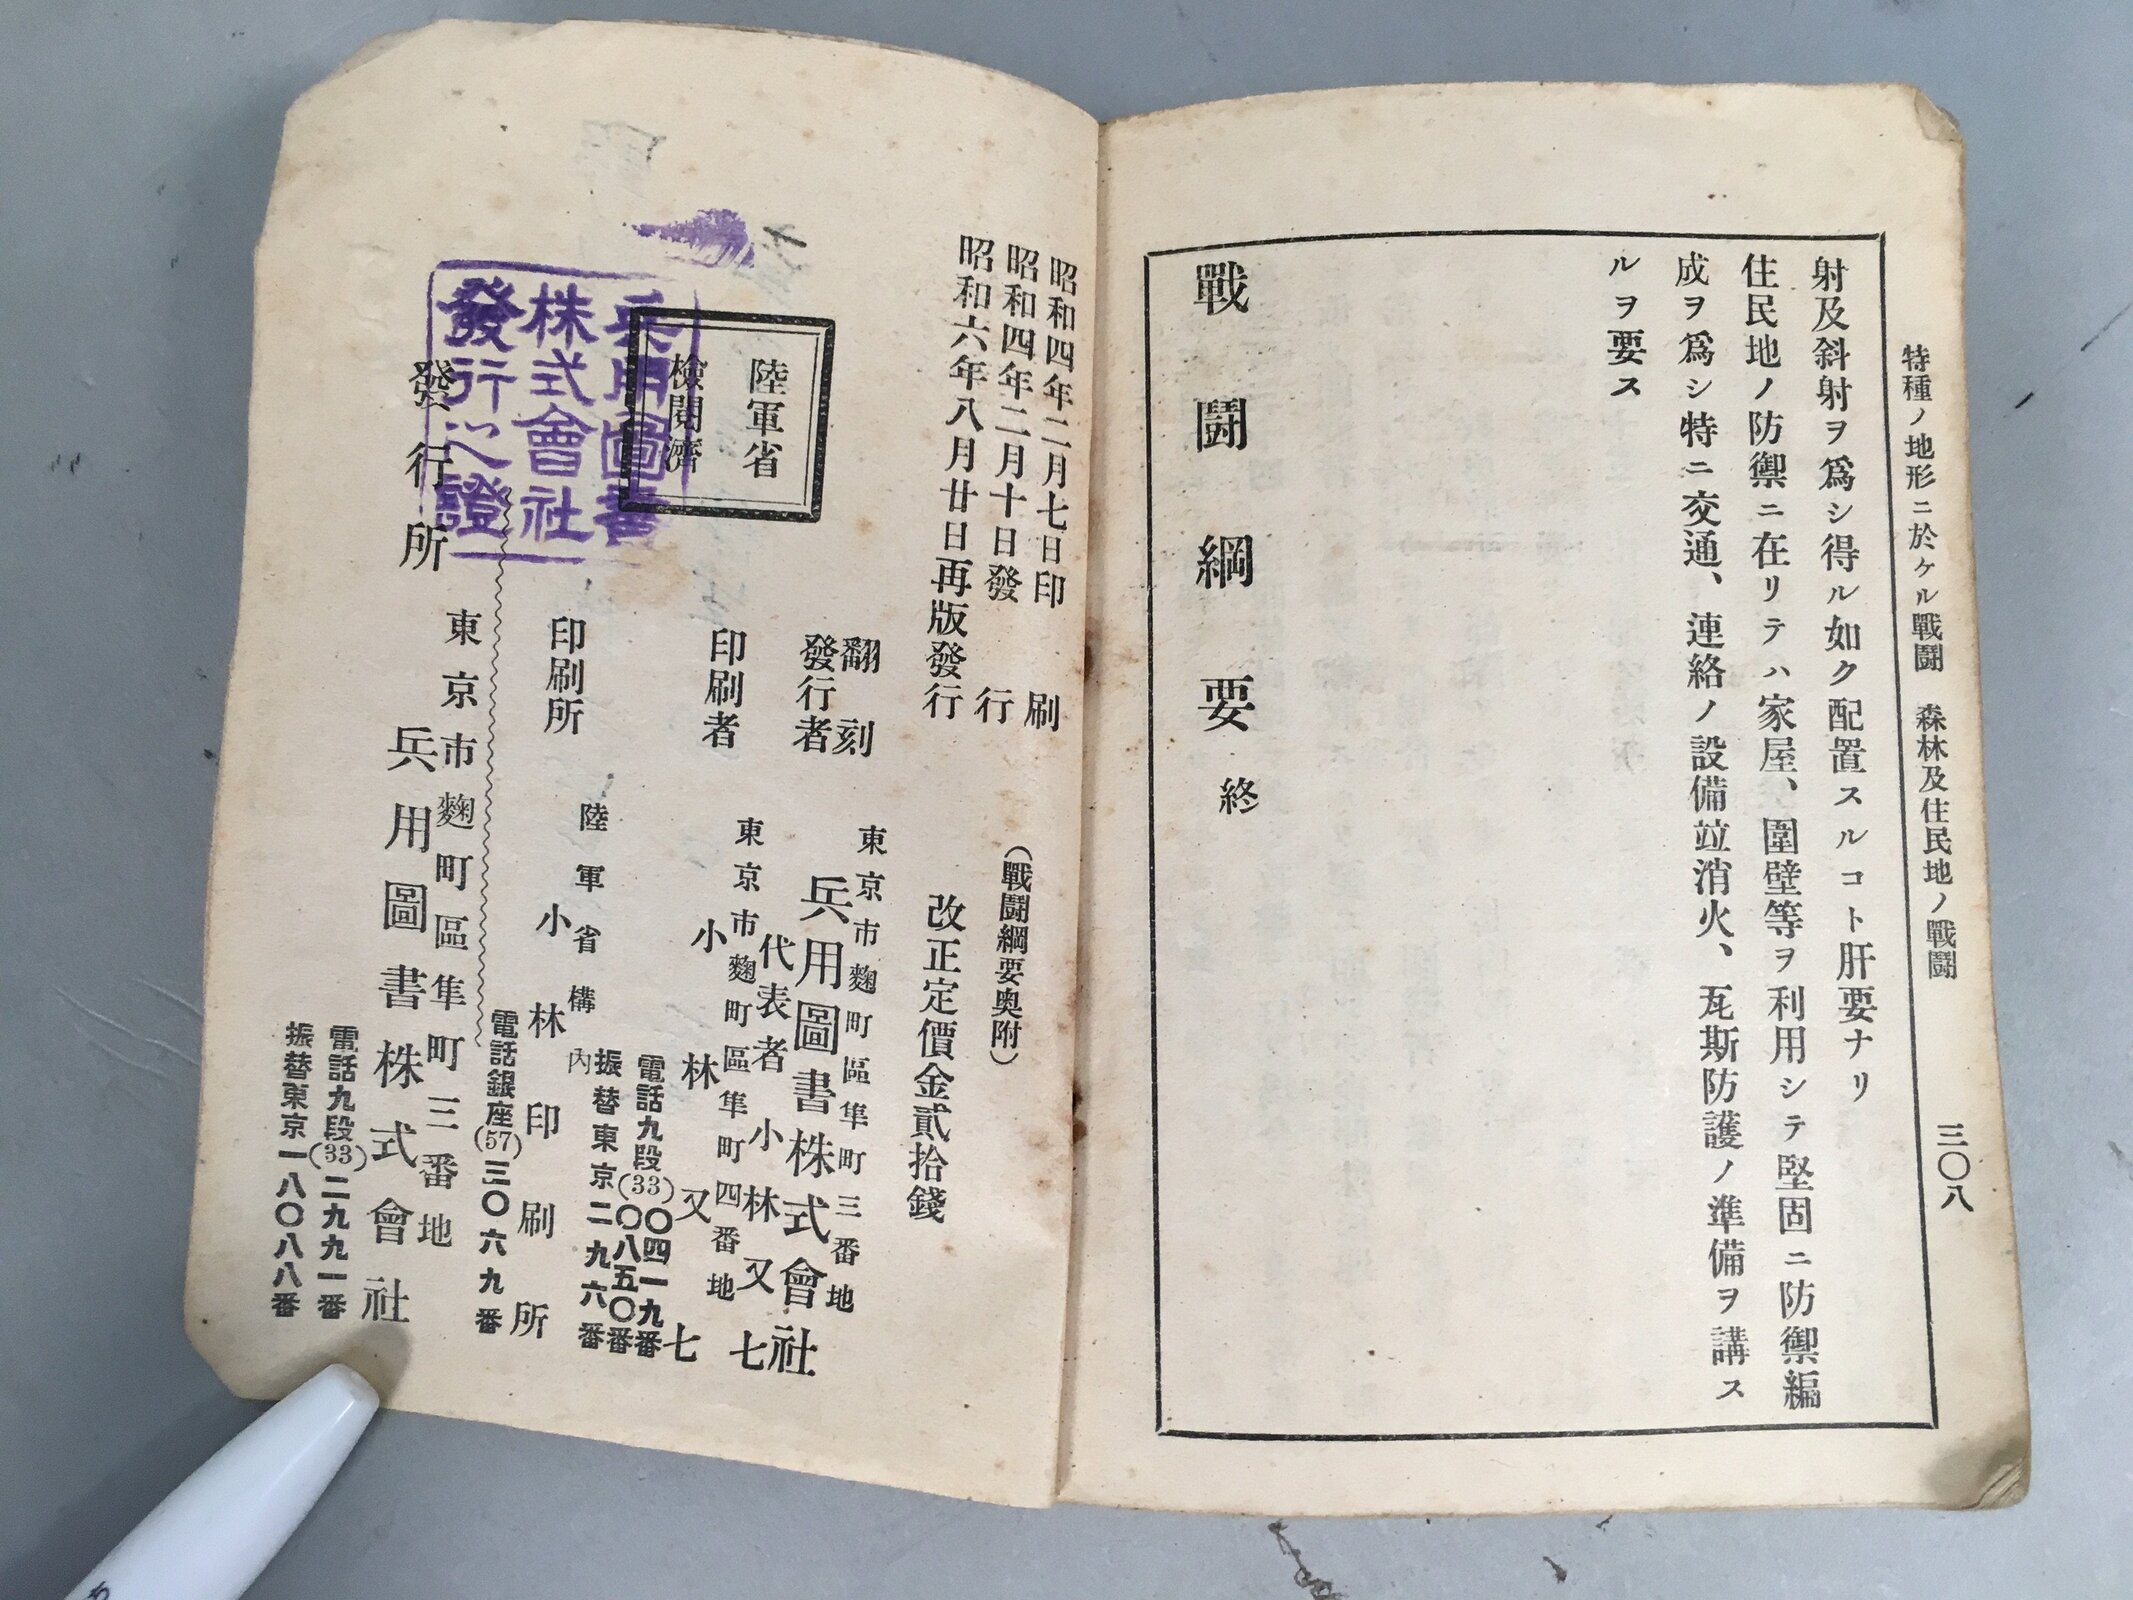 特種ノ地形ニ於ケル戰鬪 森林及住民地ノ戰鬪 三〇八
射及斜射ヲ爲シ得ル如ク配置スルコト肝要ナリ
住民地ノ防禦ニ在リテハ家屋、圍壁等ヲ利用シテ堅固ニ防禦編
成ヲ爲シ特ニ交通、連絡ノ設備竝消火、瓦斯防護ノ準備ヲ講ス
ルヲ要ス
戰鬪綱要 終
昭和四年二月七日印刷
昭和四年二月十日發行
昭和六年八月廿日再版發行
(戰鬪綱要奧附)
改正定價金貳拾錢
陸軍省
檢閱濟
翻刻
發行者
東京市麴町區隼町三番地
兵用圖書株式會社
代表者 小林又七
印刷者
東京市麴町區隼町四番地
小林又七
電話九段(33)〇四一九番
〇八五〇番
振替東京二九六番
印刷所
陸軍省構內
小林印刷所
電話銀座(57)三〇六九番
兵用圖書
株式會社
發行之證
發行所
東京市麴町區隼町三番地
兵用圖書株式會社
電話九段(33)二九九一番
振替東京一八〇八八番